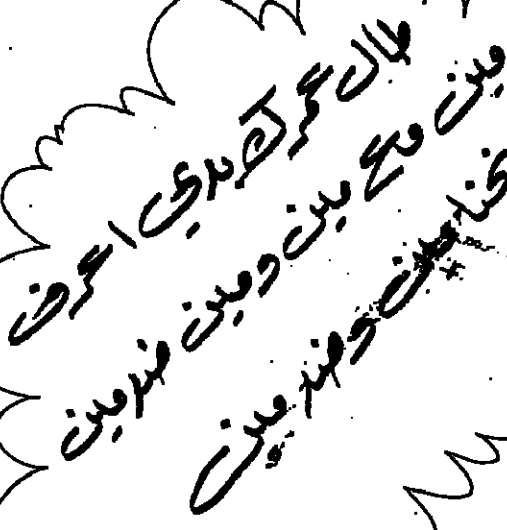 طال عمرك بدي اعرف
مين مع مين ومين ضد مين
حنا مين وضد مين